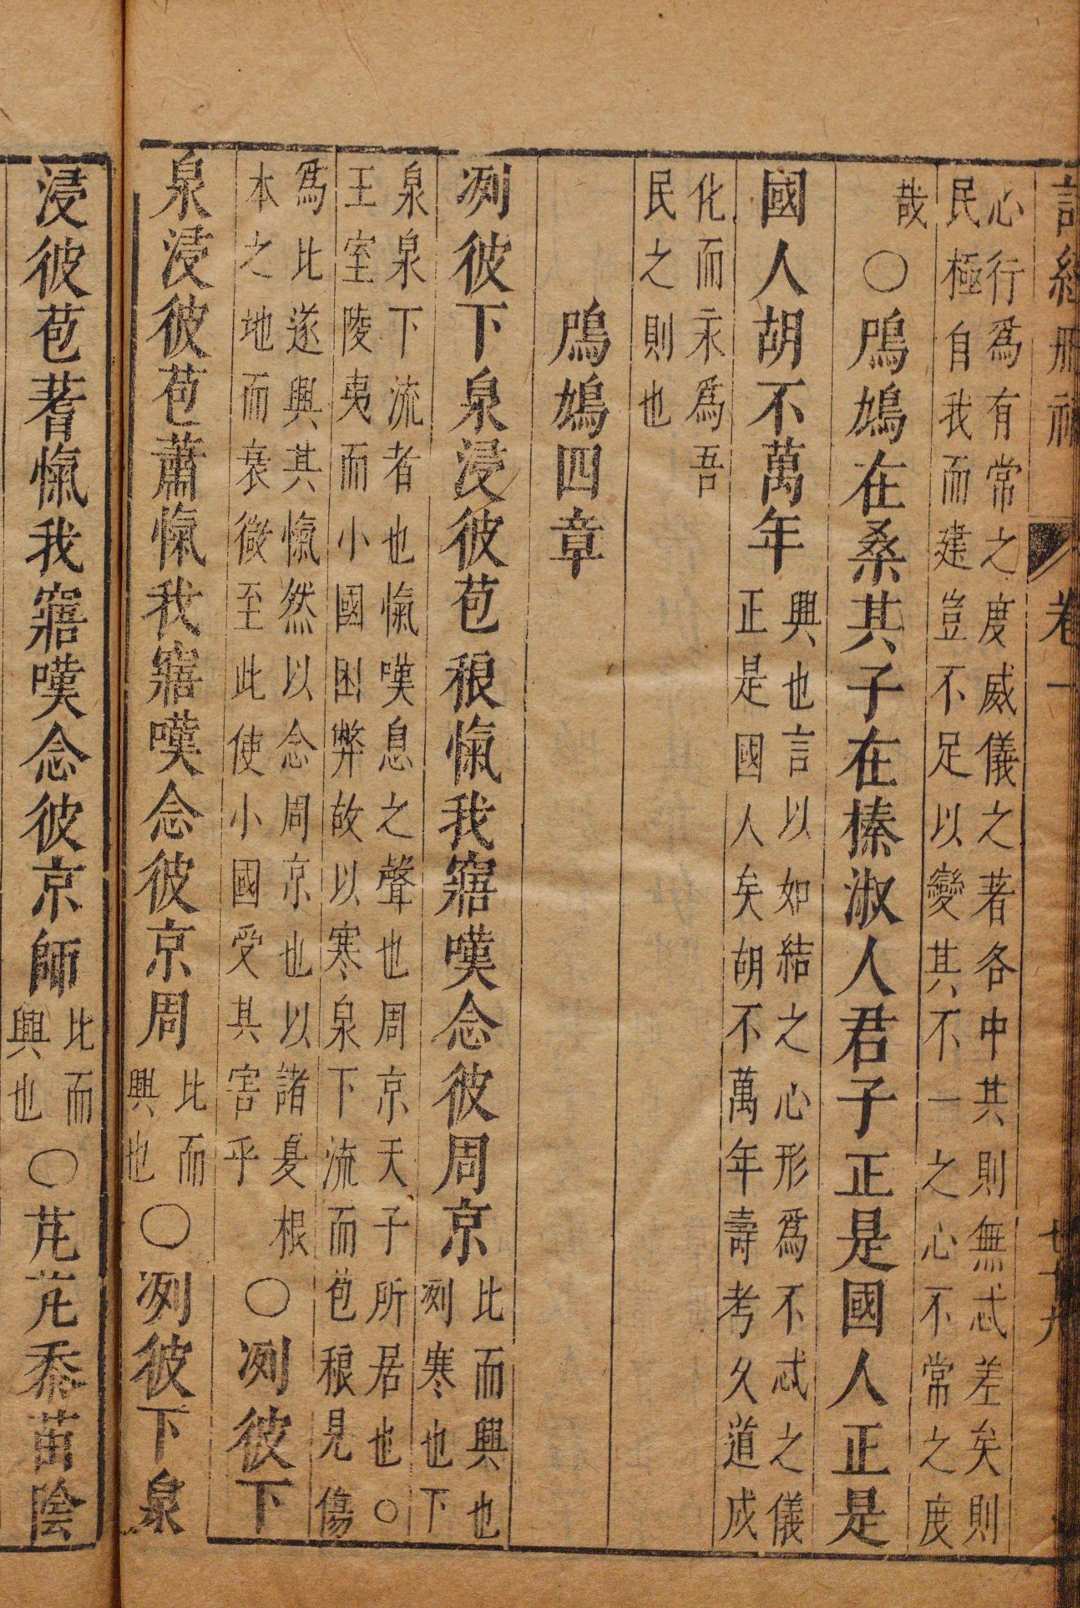 卷一
七十九
心行爲有常之度威儀之著各中其則無忒差矣則
民極自我而建豈不足以變其不一之心不常之度
哉
○鳲鳩在桑其子在榛淑人君子正是國人正是
國人胡不萬年
興也言以如結之心形爲不忒之儀
正是國人矣胡不萬年壽考久道成
化而永爲吾
民之則也
鳲鳩四章
冽彼下泉浸彼苞稂愾我寤嘆念彼周京
比而興也
冽寒也下
泉泉下流者也愾嘆息之聲也周京天子所居也○
王室陵夷而小國困弊故以寒泉下流而苞稂見傷
爲比遂興其愾然以念周京也以諸夏根
本之地而衰微至此使小國受其害乎
○冽彼下
泉浸彼苞蕭愾我寤嘆念彼京周
比而
興也
○冽彼下泉
浸彼苞蓍愾我寤嘆念彼京師
比而
興也
○芃芃黍苗陰